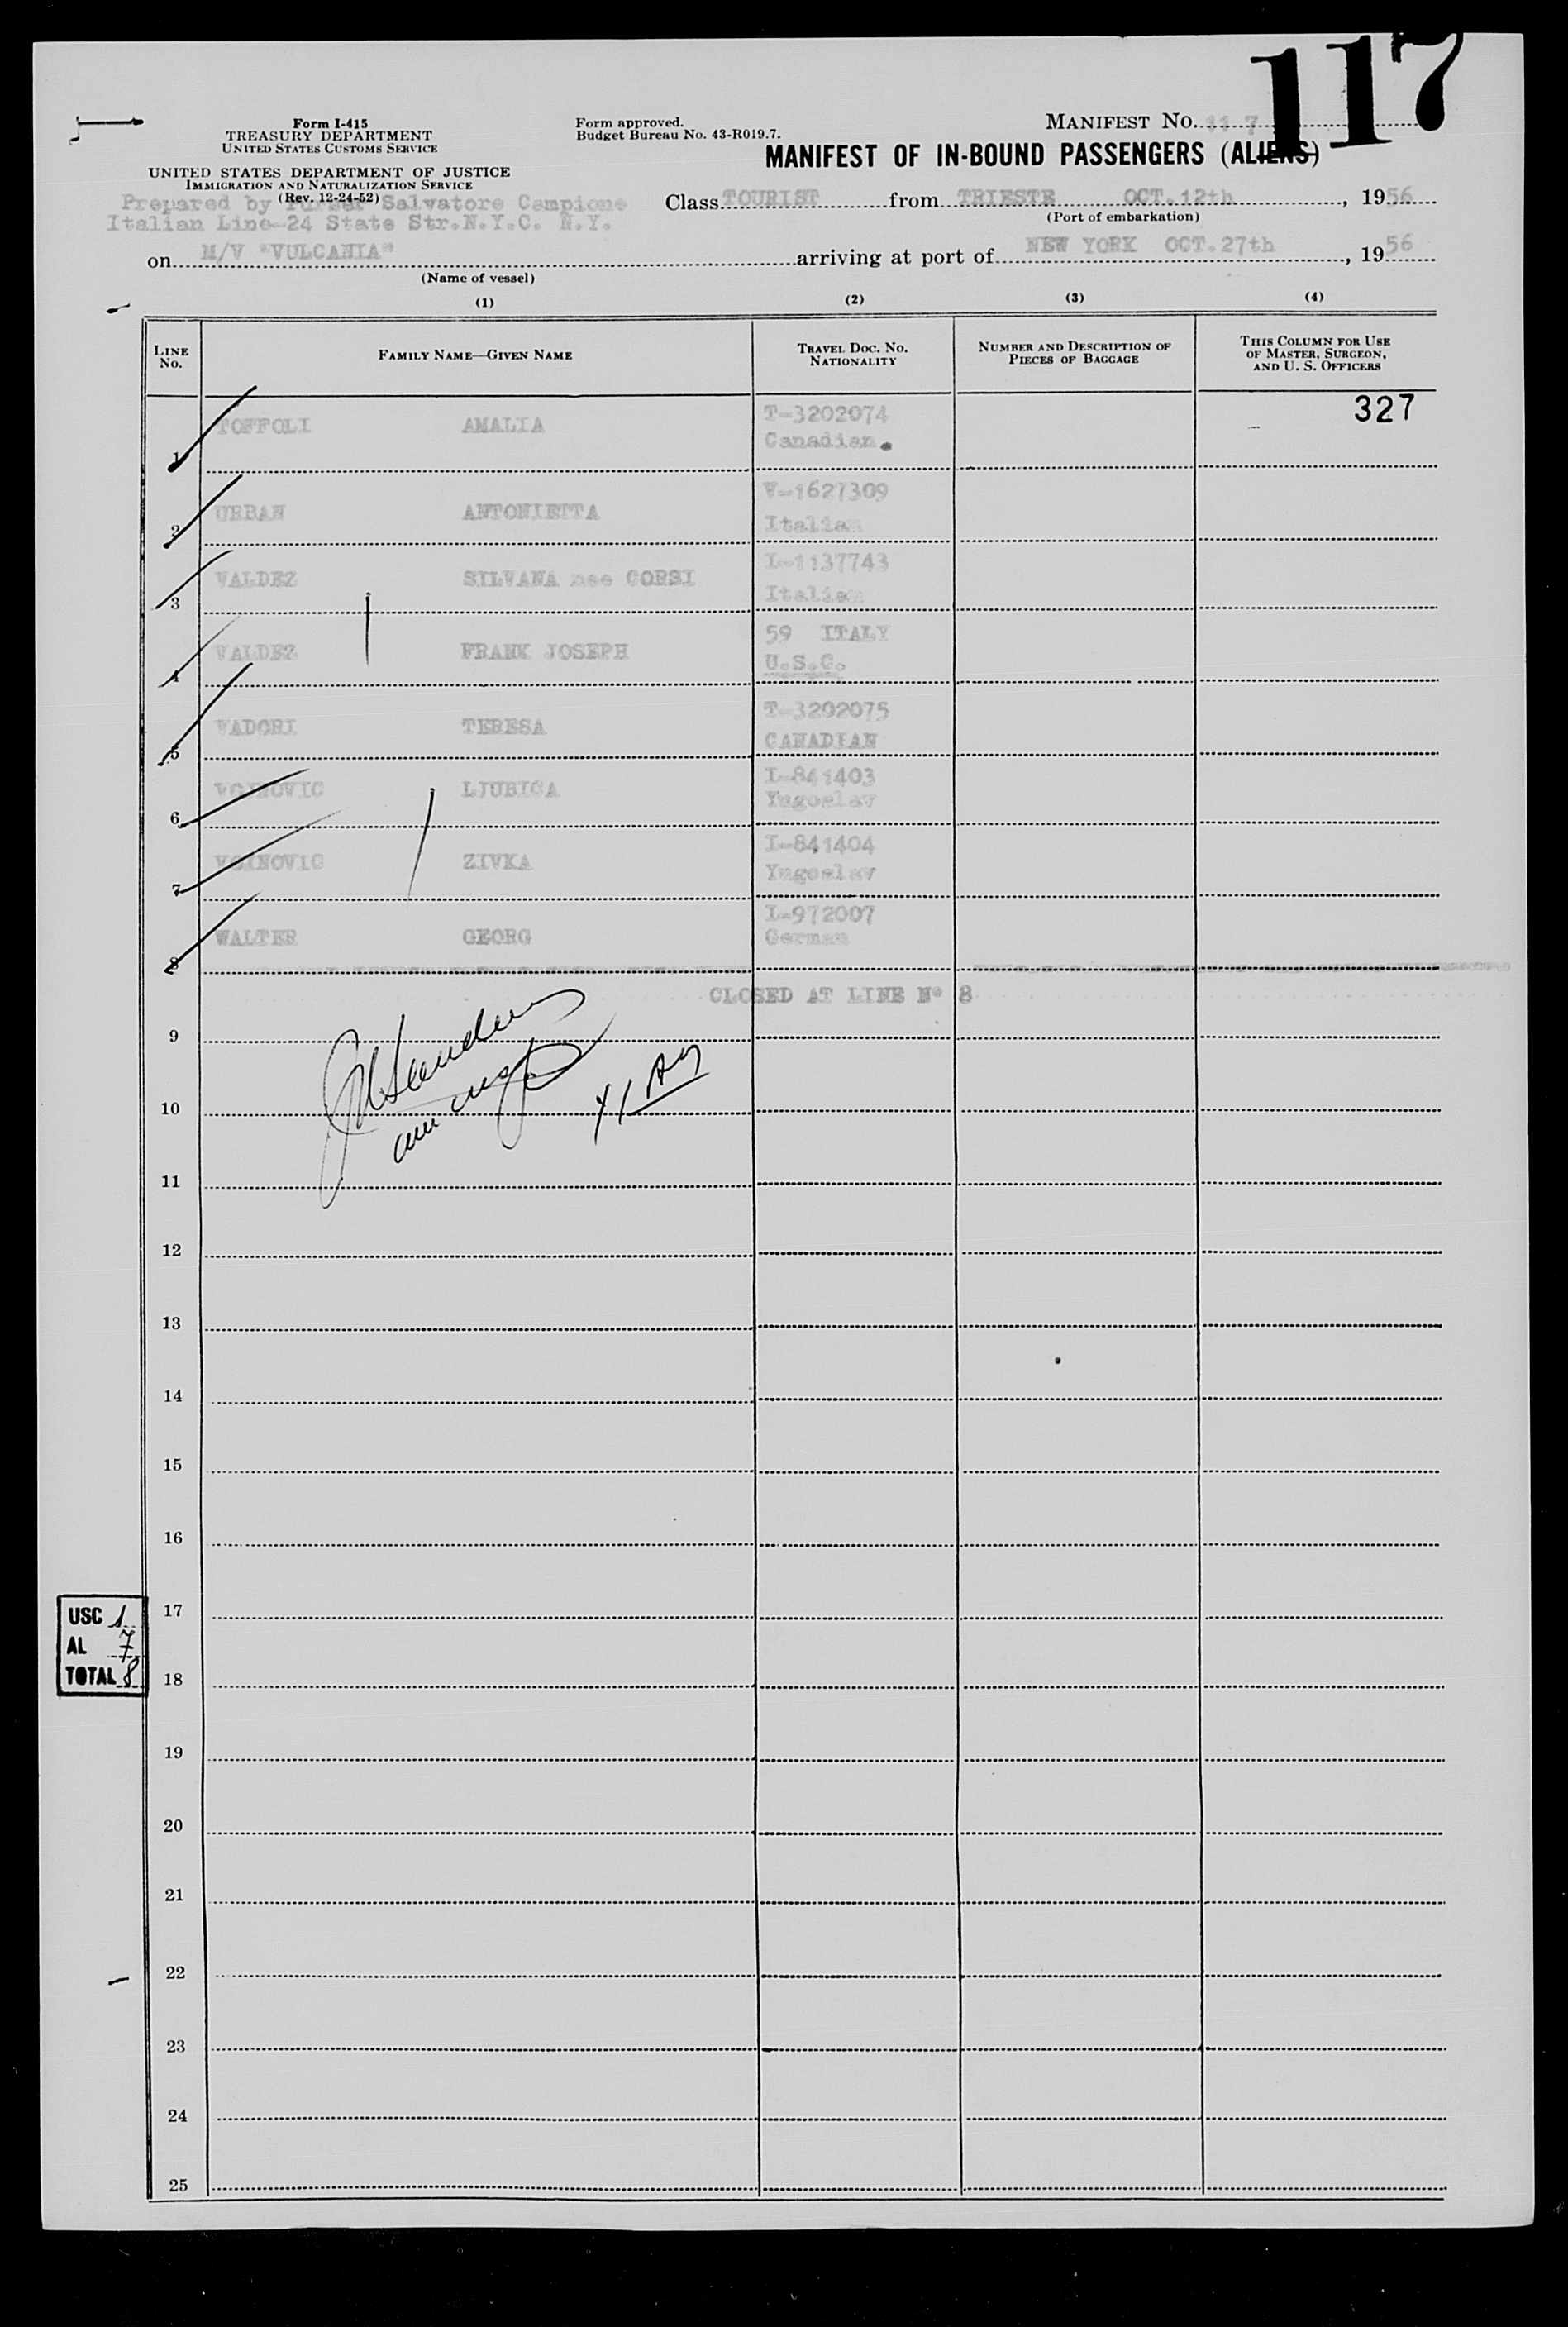 117
Form I-415
TREASURY DEPARTMENT
UNITED STATES CUSTOMS SERVICE
UNITED STATES DEPARTMENT OF JUSTICE
IMMIGRATION AND NATURALIZATION SERVICE
(Rev. 12-24-52)
Form approved.
Budget Bureau No. 43-R019.7.
MANIFEST NO. 117
MANIFEST OF IN-BOUND PASSENGERS (ALIENS)
Prepared by Purser Salvatore Campione
Italian Line-24 State Str.N.Y.C. N.Y.
Class TOURIST from TRIESTE OCT.12th, 1956
(Port of embarkation)
on M/V "VULCANIA" arriving at port of NEW YORK OCT.27th, 1956
(Name of vessel)
(1) (2) (3) (4)
LINE No. FAMILY NAME—GIVEN NAME TRAVEL DOC. NO. NATIONALITY NUMBER AND DESCRIPTION OF PIECES OF BAGGAGE THIS COLUMN FOR USE OF MASTER, SURGEON, AND U. S. OFFICERS
327
1 TOFFOLI AMALIA T-3202074 Canadian.
2 URBAN ANTONIETTA V-1627309 Italian
3 VALDEZ SILVANA nee CORSI I-1137743 Italian
4 VALDEZ FRANK JOSEPH 59 ITALY U.S.C.
5 VADORI TERESA T-3202075 CANADIAN
6 VOJNOVIC LJUBICA I-841403 Yugoslav
7 VOJNOVIC ZIVKA I-841404 Yugoslav
8 WALTER GEORG I-972007 German
CLOSED AT LINE Nº 8
9
10
11
12
13
14
15
16
17
18
19
20
21
22
23
24
25
USC 1
AL 7
TOTAL 8